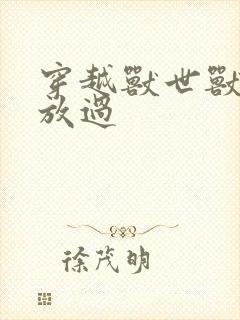 穿越獸世獸
放過
徐茂明